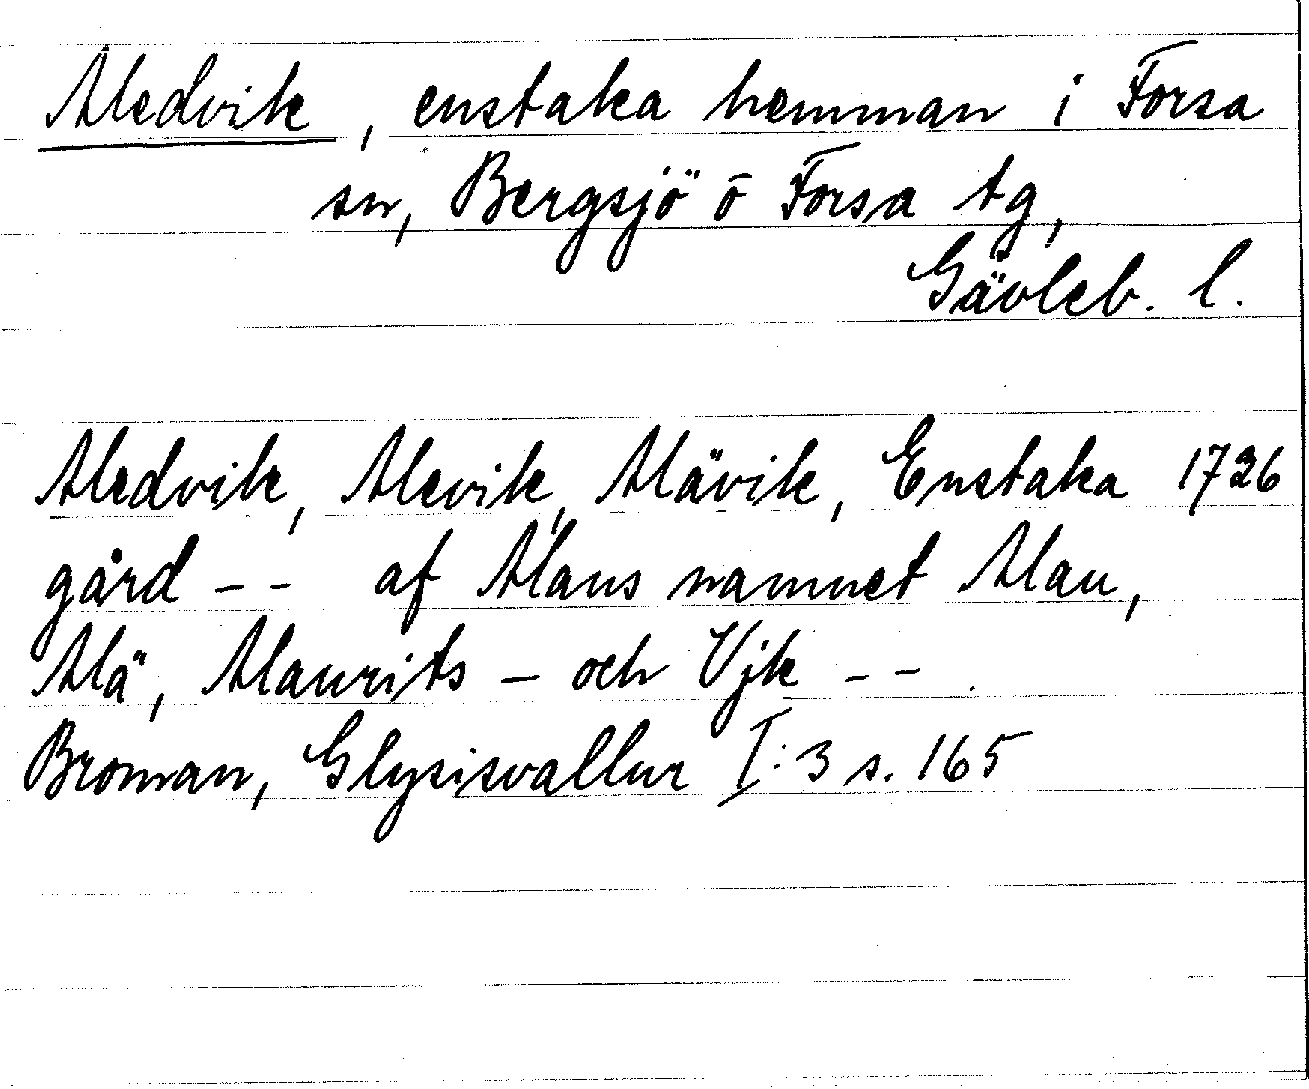 Medvik, enstaka hemman i Forsa
sn, Bergsjö o Forsa tg,
Gävleb. l.
Medvik, Mevik, Mävik, Enstaka 1726
gård -- af Mans namnet Mau,
Mä, Maurits - och Vjk --.
Broman, Glysisvallur I:3 s. 165